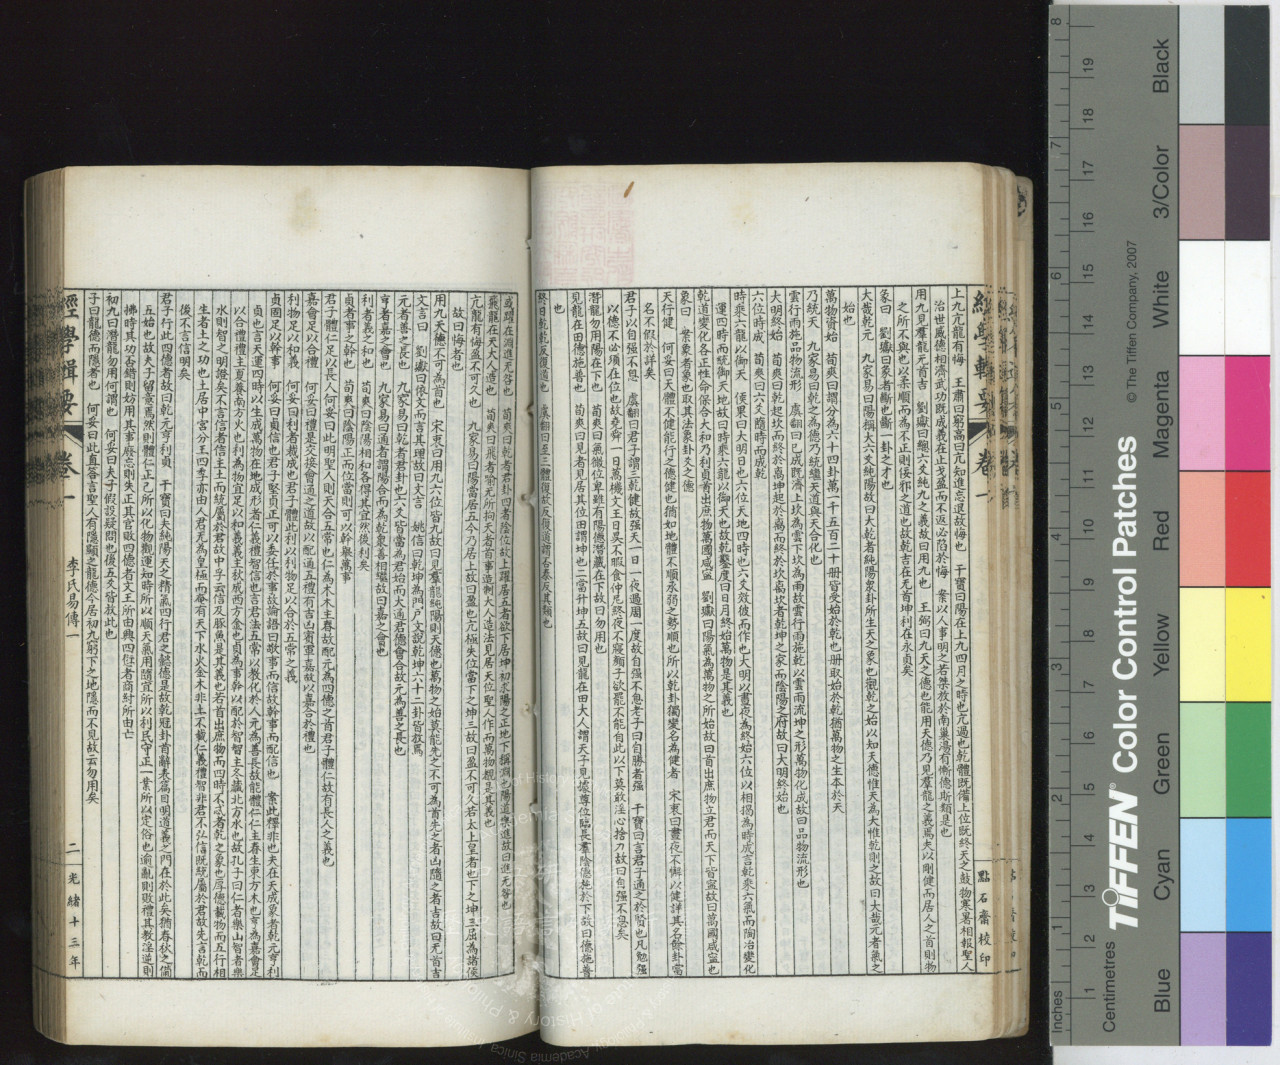 上九亢龍有悔　王肅曰窮高曰亢知進忘退故悔也　干寶曰陽在上九四月之時也亢過也乾體既備上位既終天之鼓物寒暑相報聖人
治世威德相濟武功既成義在止戈盈而不返必陷於悔　案以人事明之若桀放於南巢湯有慚德斯類是也
用九見羣龍无首吉　劉瓛曰總六爻純九之義故曰用九也　王弼曰九天之德也能用天德乃見羣龍之義焉夫以剛健而居人之首則物
之所不與也以柔順而為不正則佞邪之道也故乾吉在无首坤利在永貞矣
彖曰　劉瓛曰彖者斷也斷一卦之才也
大哉乾元　九家易曰陽稱大六爻純陽故曰大乾者純陽衆卦所生天之象也觀乾之始以知天德惟天為大惟乾則之故曰大哉元者氣之
始也
萬物資始　荀爽曰謂分為六十四卦萬一千五百二十冊皆受始於乾也冊取始於乾猶萬物之生本於天
乃統天　九家易曰乾之為德乃統繼天道與天合化也
雲行雨施品物流形　虞翻曰已成既濟上坎為雲下坎為雨故雲行雨施乾以雲雨流坤之形萬物化成故曰品物流形也
大明終始　荀爽曰乾起坎而終於离坤起於离而終於坎离坎者乾坤之家而陰陽之府故曰大明終始也
六位時成　荀爽曰六爻隨時而成乾
時乘六龍以御天　侯果曰大明日也六位天地四時也六爻效彼而作也大明以晝夜為終始六位以相揭為時成言乾乘六氣而陶冶變化
運四時而統御天地故曰時乘六龍以御天也故乾鑿度曰日月終始萬物是其義也
乾道變化各正性命保合大和乃利貞首出庶物萬國咸寧　劉瓛曰陽氣為萬物之所始故曰首出庶物立君而天下皆寧故曰萬國咸寧也
象曰　案象者象也取其法象卦爻之德
天行健　何妥曰天體不健能行之德健也猶如地體不順承弱之勢順也所以乾卦獨變名為健者　宋衷曰晝夜不懈以健詳其名餘卦當
名不假於詳矣
君子以自强不息　虞翻曰君子謂三乾健故强天一日一夜過周一度故自强不息老子曰自勝者强　干寶曰言君子通之於賢也凡勉强
以德不必須在位也故堯舜一日萬機文王日昃不暇食仲尼終夜不寢顏子欲罷不能自此以下莫敢淫心捨力故曰自强不息矣
潛龍勿用陽在下也　荀爽曰氣微位卑雖有陽德潛藏在下故曰勿用也
見龍在田德施普也　荀爽曰見者見居其位田謂坤也二當升坤五故曰見龍在田大人謂天子見據尊位臨長羣陰德施於下故曰德施普
也
終日乾乾反復道也　虞翻曰至三體復故反復道謂否泰反其類也
或躍在淵進无咎也　荀爽曰乾者君卦四者陰位故上躍居五者欲下居坤初求陽之正地下稱淵也陽道樂進故曰進无咎也
飛龍在天大人造也　荀爽曰飛者喻无所拘天者首事造制大人造法見居天位聖人作而萬物覩是其義也
亢龍有悔盈不可久也　九家易曰陽當居五今乃居上故曰盈也亢極失位當下之坤三故曰盈不可久若太上皇者也下之坤三屈為諸侯
故曰悔者也
用九天德不可為首也　宋衷曰用九六位皆九故曰見羣龍純陽則天德也萬物之始莫能先之不可為首先之者凶隨之者吉故曰无首吉
文言曰　劉瓛曰依文而言其理故曰文言　姚信曰乾坤為門戶文說乾坤六十二卦皆放焉
元者善之長也　九家易曰乾者君卦也六爻皆當為君始而大通君德會合故元為善之長也
亨者嘉之會也　九家易曰通者謂陽合而為乾衆善相繼故曰嘉之會也
利者義之和也　荀爽曰陰陽相和各得其宜然後利矣
貞者事之幹也　荀爽曰陰陽正而位當則可以幹舉萬事
君子體仁足以長人何妥曰此明聖人則天合五常也仁為木木主春故配元為四德之首君子體仁故有長人之義也
嘉會足以合禮　何妥曰禮是交接會通之道故以配通五禮有吉凶賓軍嘉故以嘉合於禮也
利物足以和義　何妥曰利者裁成也君子體此利以利物足以合於五常之義
貞固足以幹事　何妥曰貞信也君子堅貞正可以委任於事故論語曰敬事而信故幹事而配信也　案此釋非也夫在天成象者乾元亨利
貞也言天運四時以生成萬物在地成形者仁義禮智信也言君法五常以教化於人元為善長故能體仁仁主春生東方木也亨為嘉會足
以合禮禮主夏養南方火也利為物宜足以和義義主秋成西方金也貞為事幹以配於智智主冬藏北方水也故孔子曰仁者樂山智者樂
水則智之明證矣不言信者信主土而統屬於君故中孚云信及豚魚是其義也若首出庶物而四時不忒者乾之象也厚德載物而五行相
生者土之功也土居中宮分王四季亦由人君无為皇極而奄有天下水火金木非土不載仁義禮智非君不弘信既統屬於君故先言乾而
後不言信明矣
君子行此四德者故曰乾元亨利貞　干寶曰夫純陽天之精氣四行君之懿德是故乾冠卦首辭表篇目明道義之門在於此矣猶春秋之備
五始也故夫子留意焉然則體仁正己所以化物觀運知時所以順天氣用隨宜所以利民守正一業所以定俗也逾亂則敗禮其教淫逆則
拂時其功否錯則妨用其事廢忘則失正其官敗四德者文王所由興四愆者商紂所由亡
初九曰潛龍勿用何謂也　何妥曰夫子假設疑問也後五爻皆放此也
子曰龍德而隱者也　何妥曰此直答言聖人有隱顯之龍德今居初九窮下之地隱而不見故云勿用矣
經學輯要　卷一　李氏易傳一　二　光緒十三年
點石齋校印
TIFFEN® Color Control Patches
© The Tiffen Company, 2007
Inches
Centimetres
Blue
Cyan
Green
Yellow
Red
Magenta
White
3/Color
Black